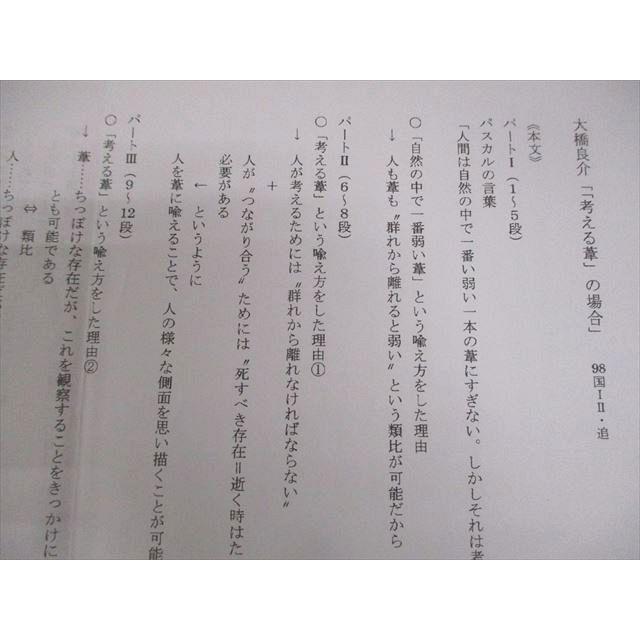 大橋良介「「考える葦」の場合」 98国ⅠⅡ・追
《本文》
パートⅠ(1~5段)
パスカルの言葉
「人間は自然の中で一番弱い一本の葦にすぎない。しかしそれは考
○「自然の中で一番弱い葦」という喩え方をした理由
→ 人も葦も〝群れから離れると弱い〟という類比が可能だから
パートⅡ(6~8段)
○「考える葦」という喩え方をした理由①
→ 人が考えるためには〝群れから離れなければならない〟
+
人が〝つながり合う〟ためには〝死すべき存在=逝く時はた
必要がある
← というように
人を葦に喩えることで、人の様々な側面を思い描くことが可能
パートⅢ(9~12段)
○「考える葦」という喩え方をした理由②
→ 葦……ちっぽけな存在だが、これを観察することをきっかけに
とも可能である
⇔ 類比
人……ちっぽけな存在